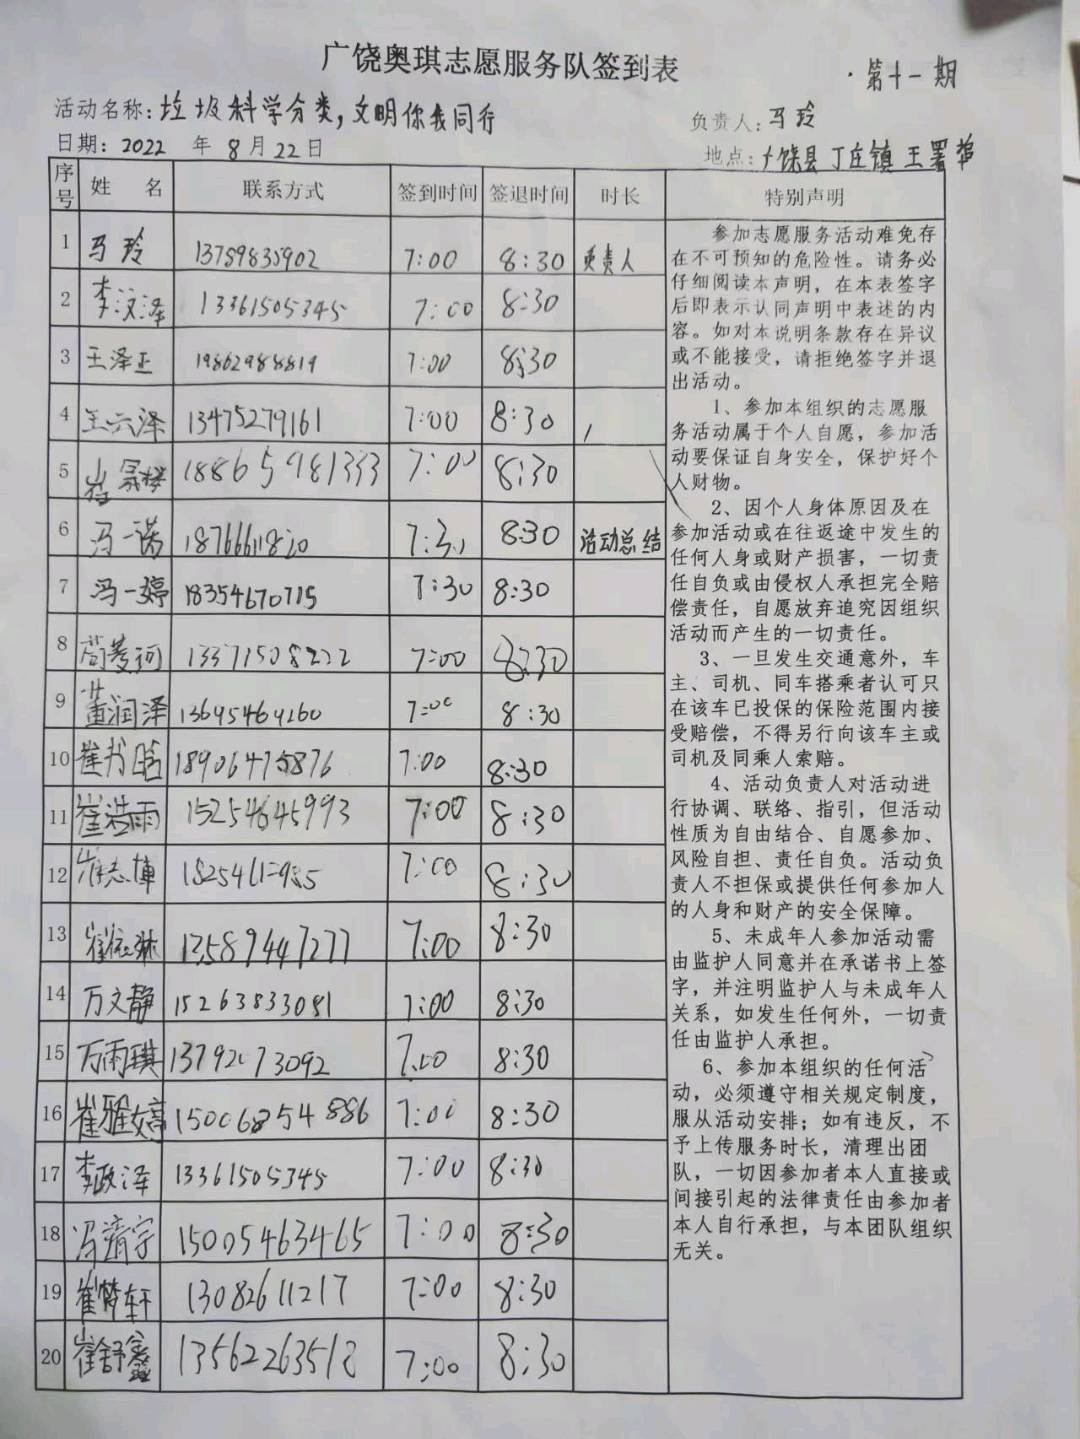 广饶奥琪志愿服务队签到表
第十一期
活动名称:垃圾科学分类,文明你我同行
负责人:马玲
日期:2022 年 8月22日
地点:广饶县丁庄镇王署埠
序号 姓 名 联系方式 签到时间 签退时间 时长 特别声明
1 马玲 13759835902 7:00 8:30 负责人
2 李汶泽 13361505345 7:00 8:30
3 王泽正 19862988819 7:00 8:30
4 王六泽 13475279161 7:00 8:30
5 崔 18865981333 7:00 8:30
6 冯一诺 7:30 8:30 活动总结
7 冯一婷 18354670715 7:30 8:30
8 13371508222 7:00 8:30
9 董润泽 13645464260 7:00 8:30
10 崔书晗 18906475876 7:00 8:30
11 崔浩雨 15254645993 7:00 8:30
12 崔志博 7:00 8:30
13 崔 13589447277 7:00 8:30
14 万文静 15263833081 7:00 8:30
15 万雨琪 13792073092 7:00 8:30
16 崔雅婷 15006854886 7:00 8:30
17 李政泽 13361505345 7:00 8:30
18 冯清宇 15005463465 7:00 8:30
19 崔梦轩 13082611217 7:00 8:30
20 崔舒鑫 13562263518 7:00 8:30
参加志愿服务活动难免存
在不可预知的危险性。请务必
仔细阅读本声明,在本表签字
后即表示认同声明中表述的内
容。如对本说明条款存在异议
或不能接受,请拒绝签字并退
出活动。
1、参加本组织的志愿服
务活动属于个人自愿,参加活
动要保证自身安全,保护好个
人财物。
2、因个人身体原因及在
参加活动或在往返途中发生的
任何人身或财产损害,一切责
任自负或由侵权人承担完全赔
偿责任,自愿放弃追究因组织
活动而产生的一切责任。
3、一旦发生交通意外,车
主、司机、同车搭乘者认可只
在该车已投保的保险范围内接
受赔偿,不得另行向该车主或
司机及同乘人索赔。
4、活动负责人对活动进
行协调、联络、指引,但活动
性质为自由结合、自愿参加、
风险自担、责任自负。活动负
责人不担保或提供任何参加人
的人身和财产的安全保障。
5、未成年人参加活动需
由监护人同意并在承诺书上签
字,并注明监护人与未成年人
关系,如发生任何外,一切责
任由监护人承担。
6、参加本组织的任何活
动,必须遵守相关规定制度,
服从活动安排;如有违反,不
予上传服务时长,清理出团
队,一切因参加者本人直接或
间接引起的法律责任由参加者
本人自行承担,与本团队组织
无关。